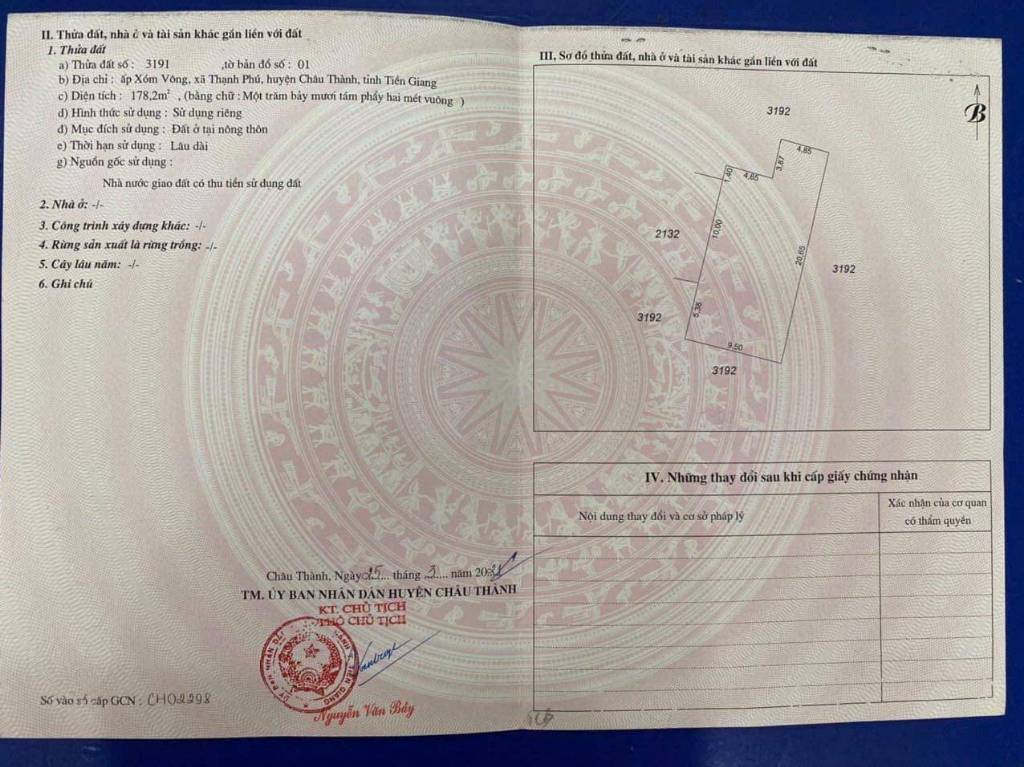 II. Thửa đất, nhà ở và tài sản khác gắn liền với đất
1. Thửa đất
a) Thửa đất số : 3191 ,tờ bản đồ số : 01
b) Địa chỉ : ấp Xóm Vông, xã Thạnh Phú, huyện Châu Thành, tỉnh Tiền Giang
c) Diện tích : 178,2m² , (bằng chữ : Một trăm bảy mươi tám phẩy hai mét vuông )
d) Hình thức sử dụng : Sử dụng riêng
đ) Mục đích sử dụng : Đất ở tại nông thôn
e) Thời hạn sử dụng : Lâu dài
g) Nguồn gốc sử dụng :
Nhà nước giao đất có thu tiền sử dụng đất
2. Nhà ở: -/-
3. Công trình xây dựng khác: -/-
4. Rừng sản xuất là rừng trồng: -/-
5. Cây lâu năm: -/-
6. Ghi chú
Châu Thành, Ngày 25 tháng 3 năm 202
TM. ỦY BAN NHÂN DÂN HUYỆN CHÂU THÀNH
KT. CHỦ TỊCH
PHÓ CHỦ TỊCH
Nguyễn Văn Bảy
Số vào sổ cấp GCN : CH02298
III. Sơ đồ thửa đất, nhà ở và tài sản khác gắn liền với đất
B
3192
4,85
3,87
4,65
1,40
2132
10,00
20,65
3192
3192
5,36
9,50
3192
IV. Những thay đổi sau khi cấp giấy chứng nhận
Nội dung thay đổi và cơ sở pháp lý
Xác nhận của cơ quan
có thẩm quyền